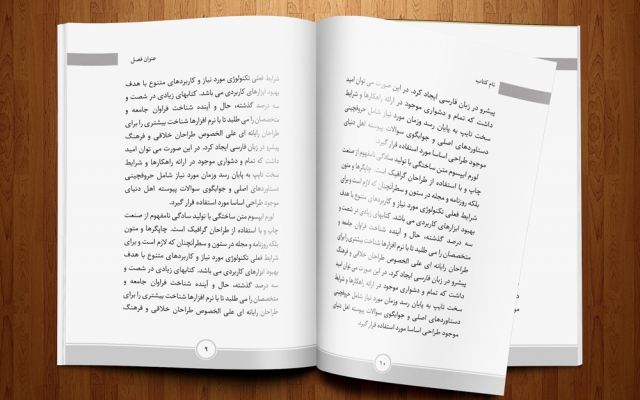 عنوان فصل
شرایط فعلی تکنولوژی مورد نیاز و کاربردهای متنوع با هدف
بهبود ابزارهای کاربردی می باشد. کتابهای زیادی در شصت و
سه درصد گذشته، حال و آینده شناخت فراوان جامعه و
متخصصان را می طلبد تا با نرم افزارها شناخت بیشتری را برای
طراحان رایانه ای علی الخصوص طراحان خلاقی و فرهنگ
پیشرو در زبان فارسی ایجاد کرد. در این صورت می توان امید
داشت که تمام و دشواری موجود در ارائه راهکارها و شرایط
سخت تایپ به پایان رسد وزمان مورد نیاز شامل حروفچینی
دستاوردهای اصلی و جوابگوی سوالات پیوسته اهل دنیای
موجود طراحی اساسا مورد استفاده قرار گیرد.
لورم ایپسوم متن ساختگی با تولید سادگی نامفهوم از صنعت
چاپ و با استفاده از طراحان گرافیک است. چاپگرها و متون
بلکه روزنامه و مجله در ستون و سطرآنچنان که لازم است و برای
شرایط فعلی تکنولوژی مورد نیاز و کاربردهای متنوع با هدف
بهبود ابزارهای کاربردی می باشد. کتابهای زیادی در شصت و
سه درصد گذشته، حال و آینده شناخت فراوان جامعه و
متخصصان را می طلبد تا با نرم افزارها شناخت بیشتری را برای
طراحان رایانه ای علی الخصوص طراحان خلاقی و فرهنگ
۹
نام کتاب
پیشرو در زبان فارسی ایجاد کرد. در این صورت می توان امید
داشت که تمام و دشواری موجود در ارائه راهکارها و شرایط
سخت تایپ به پایان رسد وزمان مورد نیاز شامل حروفچینی
دستاوردهای اصلی و جوابگوی سوالات پیوسته اهل دنیای
موجود طراحی اساسا مورد استفاده قرار گیرد.
لورم ایپسوم متن ساختگی با تولید سادگی نامفهوم از صنعت
چاپ و با استفاده از طراحان گرافیک است. چاپگرها و متون
بلکه روزنامه و مجله در ستون و سطرآنچنان که لازم است و برای
شرایط فعلی تکنولوژی مورد نیاز و کاربردهای متنوع با هدف
بهبود ابزارهای کاربردی می باشد. کتابهای زیادی در شصت و
سه درصد گذشته، حال و آینده شناخت فراوان جامعه و
متخصصان را می طلبد تا با نرم افزارها شناخت بیشتری را برای
طراحان رایانه ای علی الخصوص طراحان خلاقی و فرهنگ
پیشرو در زبان فارسی ایجاد کرد. در این صورت می توان امید
داشت که تمام و دشواری موجود در ارائه راهکارها و شرایط
سخت تایپ به پایان رسد وزمان مورد نیاز شامل حروفچینی
دستاوردهای اصلی و جوابگوی سوالات پیوسته اهل دنیای
موجود طراحی اساسا مورد استفاده قرار گیرد.
۱۰